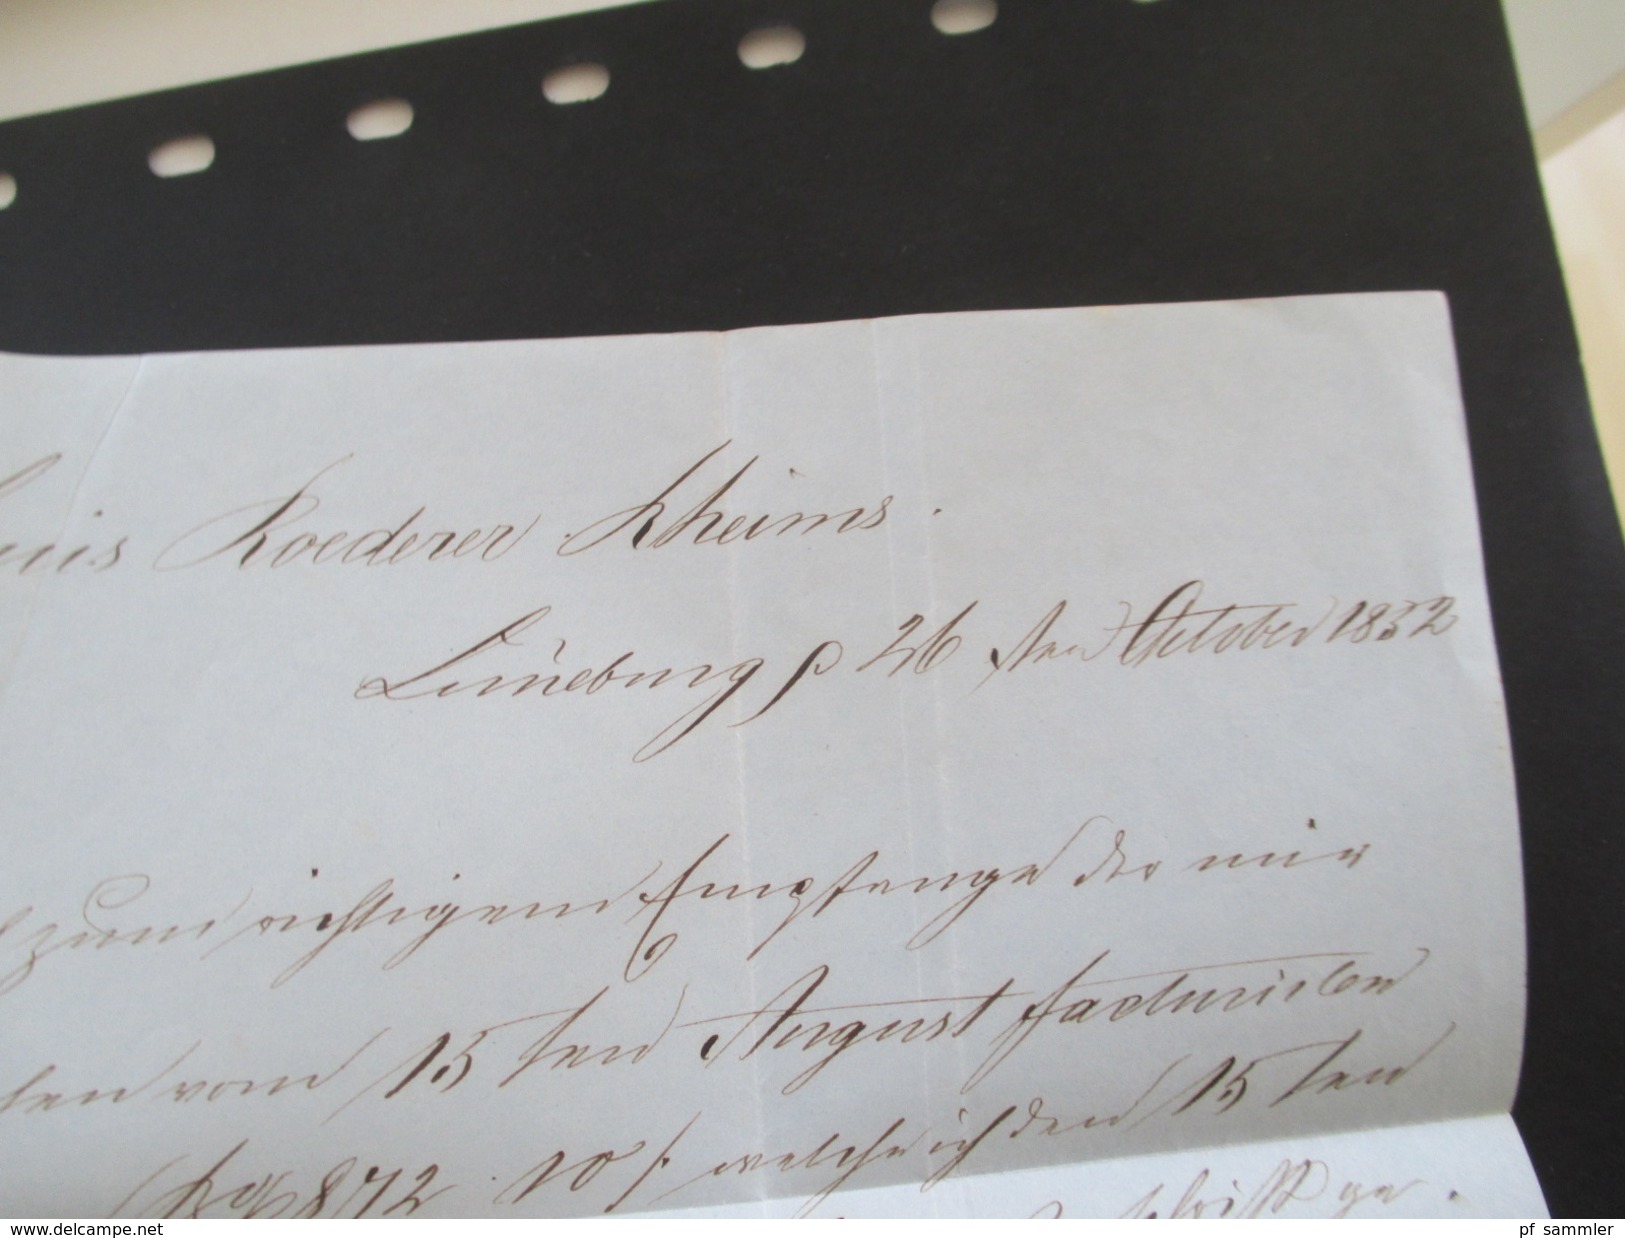 uis Roederer Rheims.
Lüneburg p 26 ten October 1852
zum richtigen Empfange der mir
ten vom 15 ten August facturirten
872. 10 /. welche ich den 15 ten
ge.
www.delcampe.net
pf_sammler